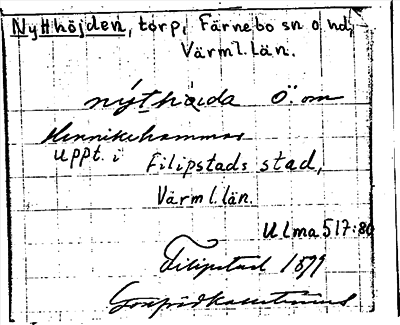 Nytthöjden, torp, Färnebo sn o hd,
Värml. län.
nýt hö̀ida Ö. om
Hennikehammar
uppt. i Filipstads stad,
Värml. län.
Ulma 517:80
Filipstad 1899